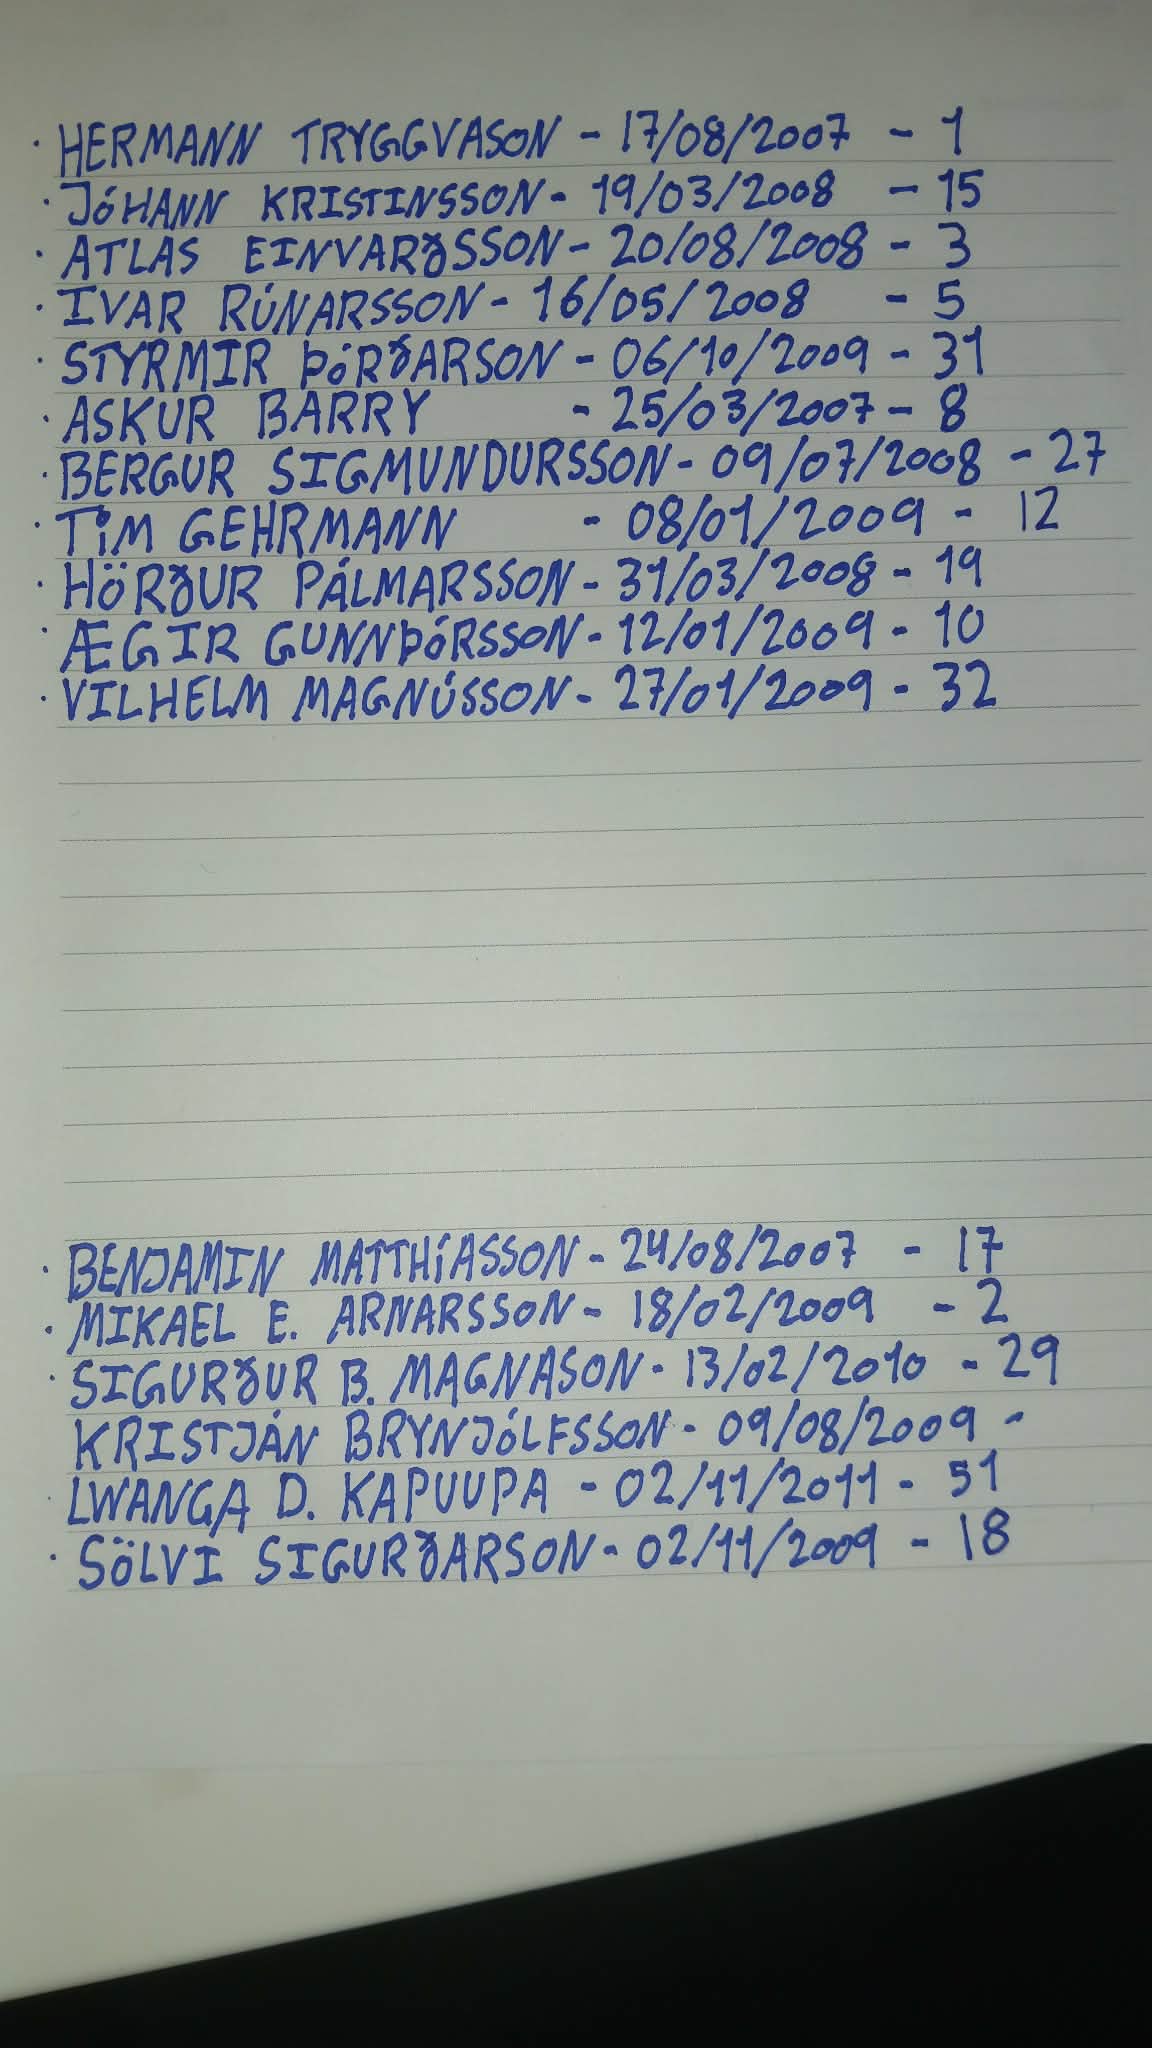 · HERMANN TRYGGVASON - 17/08/2007 - 1
· JÓHANN KRISTINSSON - 19/03/2008 - 15
· ATLAS EINVARÐSSON - 20/08/2008 - 3
· IVAR RÚNARSSON - 16/05/2008 - 5
· STYRMIR ÞÓRÐARSON - 06/10/2009 - 31
· ASKUR BARRY - 25/03/2007 - 8
· BERGUR SIGMUNDURSSON - 09/07/2008 - 27
· TIM GEHRMANN - 08/01/2009 - 12
· HÖRÐUR PÁLMARSSON - 31/03/2008 - 19
· ÆGIR GUNNÞÓRSSON - 12/01/2009 - 10
· VILHELM MAGNÚSSON - 27/01/2009 - 32
· BENJAMIN MATTHÍASSON - 24/08/2007 - 17
· MIKAEL E. ARNARSSON - 18/02/2009 - 2
· SIGURÐUR B. MAGNASON - 13/02/2010 - 29
KRISTJÁN BRYNJÓLFSSON - 09/08/2009 -
· LWANGA D. KAPUUPA - 02/11/2011 - 51
· SÖLVI SIGURÐARSON - 02/11/2009 - 18